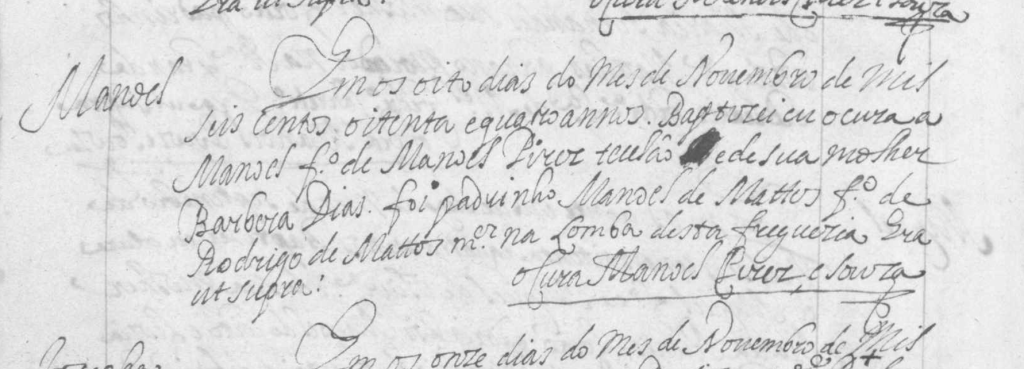 Era ut supra.
o Cura Manoel Pirez e souza
Manoel
Em os oito dias do Mes de Nouembro de Mil
seis centos oitenta e quatro annos. Baptizei eu o cura a
Manoel f.º de Manoel Pirez teselão e de sua molher
Barbora Dias. foi padrinho Manoel de Mattos f.º de
Rodrigo de Mattos m.or na Lomba desta freguezia Era
ut supra.
o Cura Manoel Pirez e souza
Em os onze dias do Mes de Nouembro de Mil